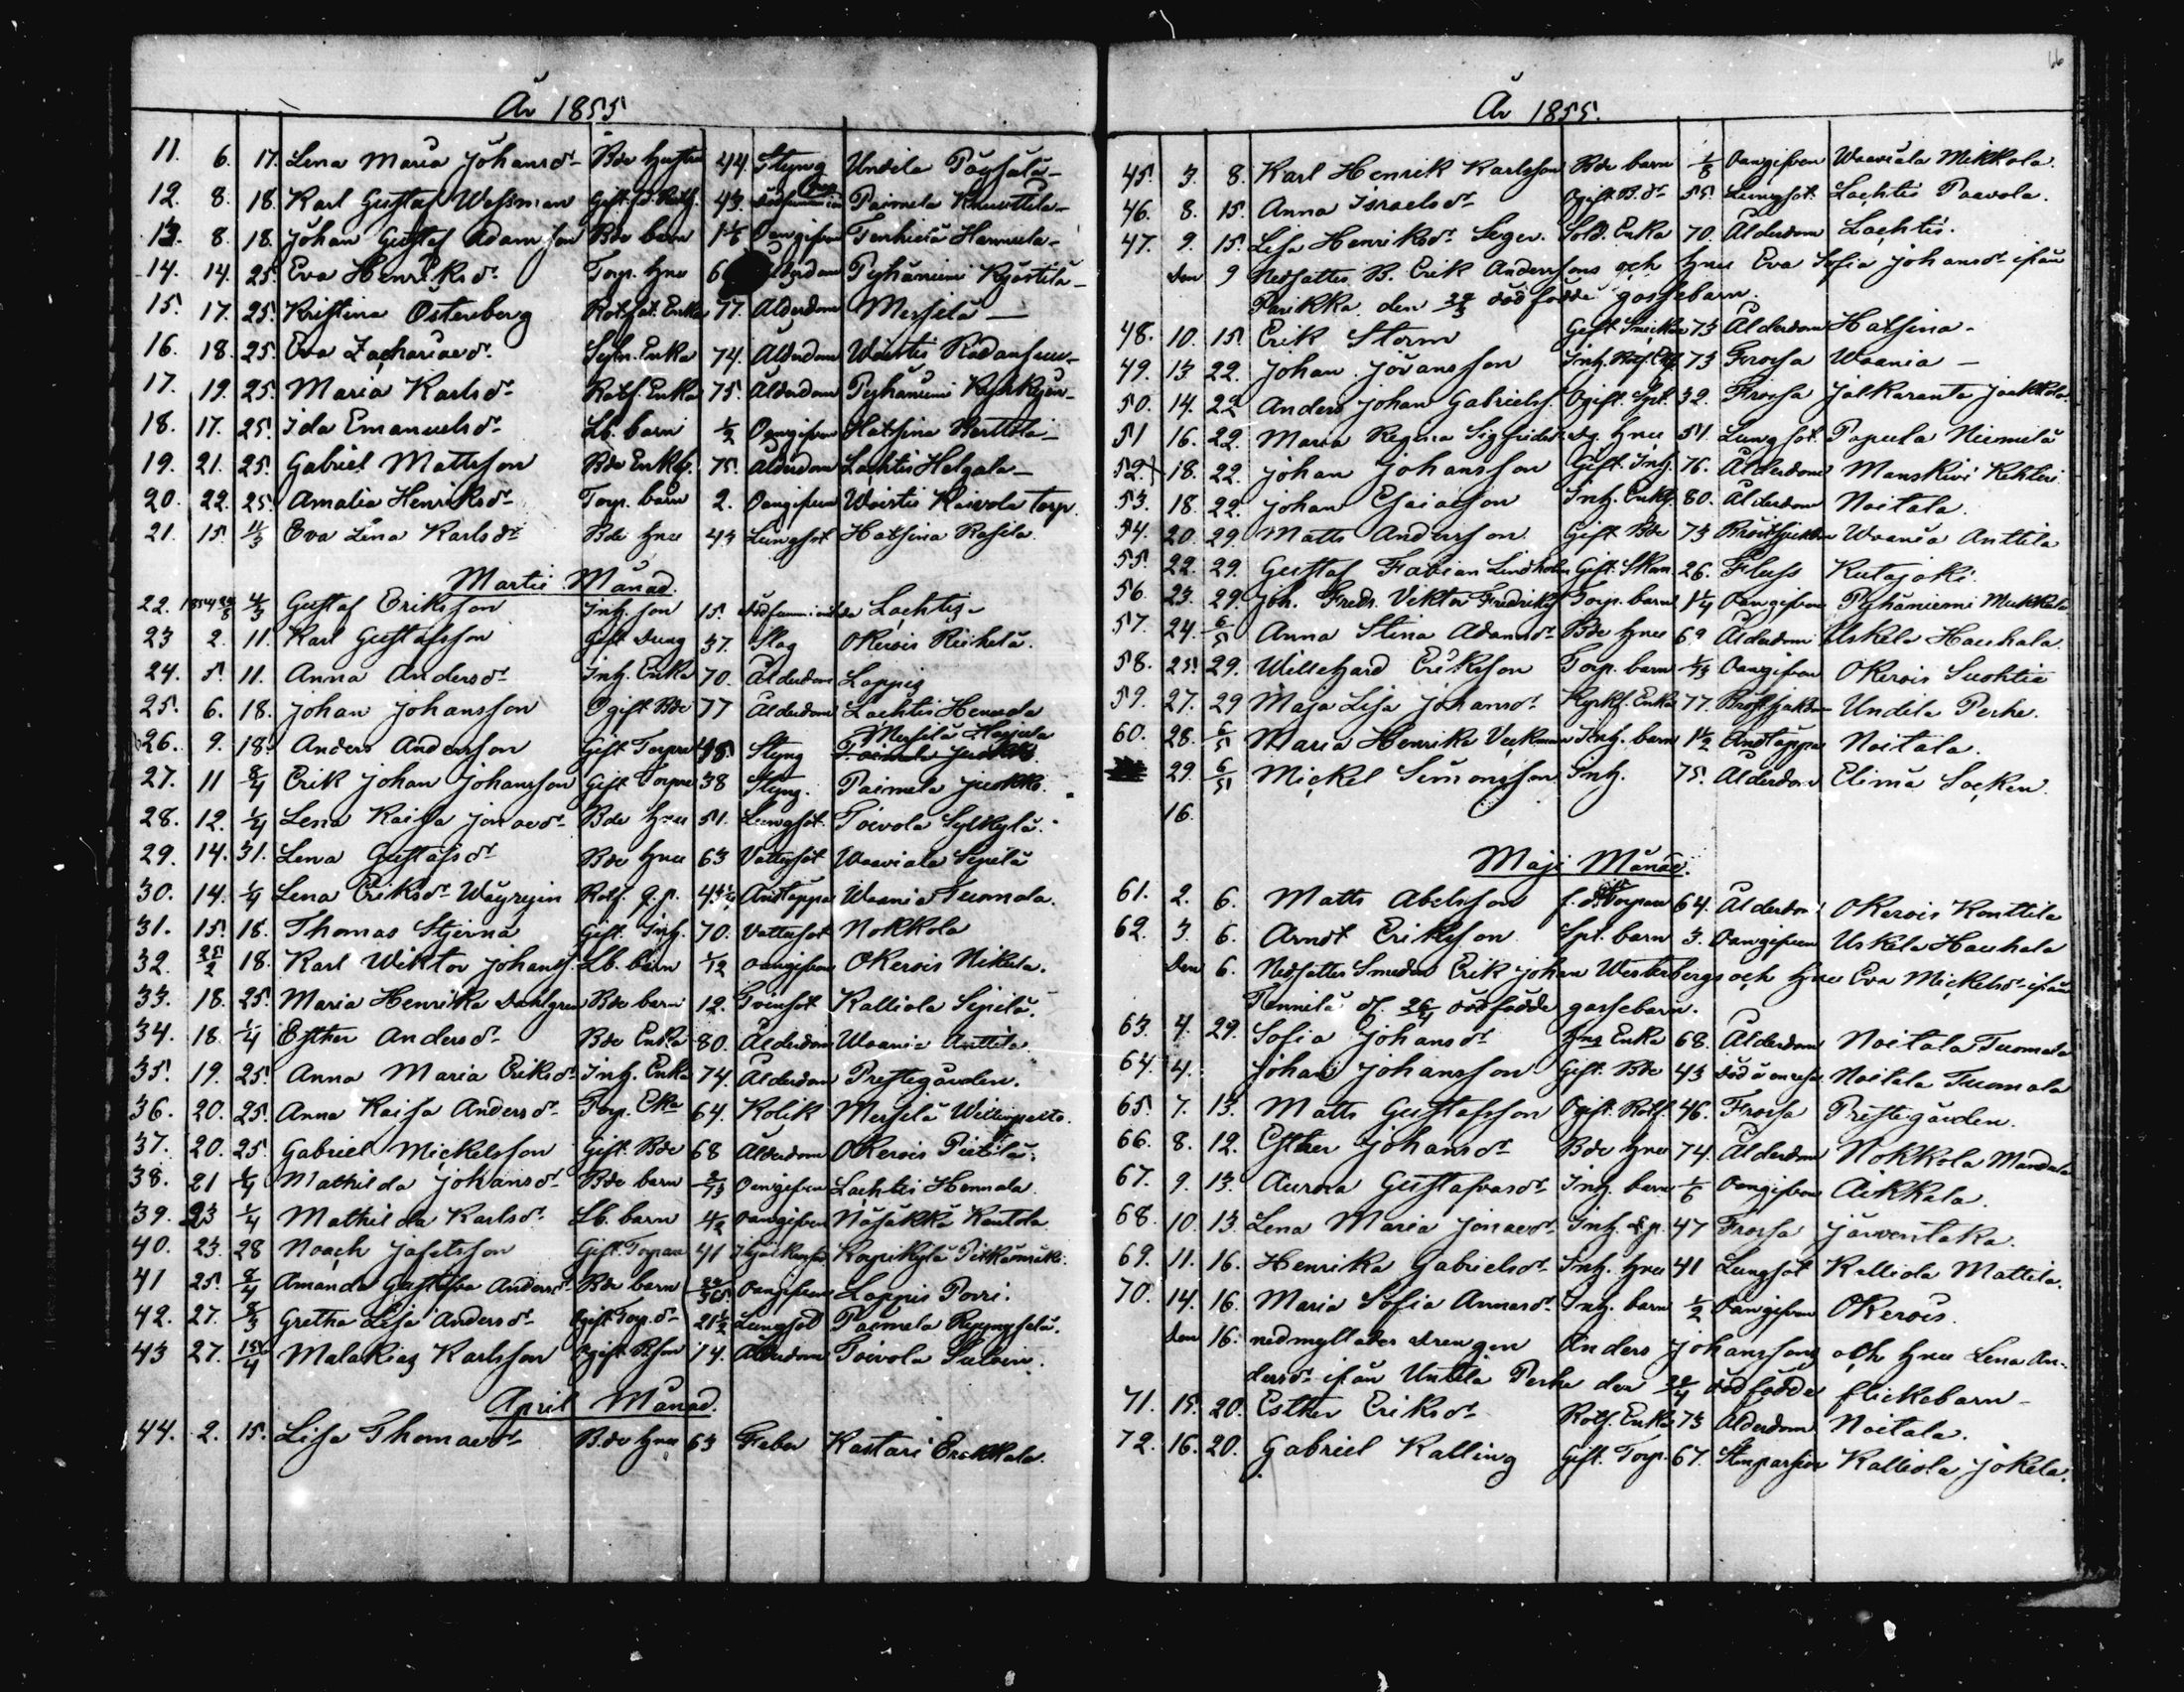 År 1855
11. 6. 17. Lena Maria Johansd:r Bde hustru 44. Styng Undila Pägsälä
12. 8. 18. Karl Gustaf Wessman Gift 43. Paimela Knuuttila
13. 8. 18. Johan Gustaf Adamsson Bde barn Oangifven Tenhielä Hannula
14. 14. 25. Eva Henriksd:r Torp. hru Ålderdom Pyhäniemi Kyöstilä
15. 17. 25. Kristina Österberg Rotfat. Enka 77. Ålderdom Messelä
16. 18. 25. Eva Zachariaed:r Sytn. Enka 74. Ålderdom Woistis
17. 19. 25. Maria Karlsd:r Rotf. Enka 75. Ålderdom Pyhäniemi
18. 17. 25. Ida Emanuelsd:r Lb. barn 1/2 Oangifven Hatsina Perttola
19. 21. 25. Gabriel Mattsson Bde Enkl. 75. Ålderdom Lachtis Helgala
20. 22. 25. Amalia Henriksd:r Torp. barn 2. Oangifven Woistis Kaivola torp.
21. 15. 11/3 Eva Lena Karlsd:r Bde hru 43 Lungsot Hatsina Rasila
Martii Månad.
22. 1854 4/3 Gustaf Eriksson Inh. son 15. Lachtis
23 2. 11. Karl Gustafsson Gift dreng 37. Slag Okerois Riihelä.
24. 5. 11. Anna Andersd:r Inh. Enka 70. Ålderdom Loppis
25. 6. 18. Johan Johansson Ogift Bde 77 Ålderdom Lachtis Hennala
26. 9. 18. Anders Andersson Gift Torpare 48. Styng Messelä
27. 11 8/4 Erik Johan Johansson Gift Torpare 38 Styng. Paimela Juokko.
28. 12. 1/4 Lena Kaisa Jonaed:r Bde hru 51. Lungsot. Toivola Sylkylä.
29. 14. 31. Lena Gustafsd:r Bde hru 63 Vattusot Waaviala Sepilä
30. 14. 1/4 Lena Eriksd:r Wäyryin Rotf. q.p. Andtäppa Waania Tuomola.
31. 15. 18. Thomas Stjerna Gift. Inh. 70. Vattusot Nokkola
32. 25/2 18. Karl Wiktor Johanss. Lb. barn 1/12 Oangifven Okerois Nikula.
33. 18. 25. Maria Henrika Dahlgren Bde barn 12. Tvinsot Kalliola Sipilä.
34. 18 1/4 Esther Andersd:r Bde Enka 80. Ålderdom Waania Anttila.
35. 19. 25. Anna Maria Eriksd:r Inh. Enka 74. Ålderdom Prestegården.
36. 20. 25. Anna Kaisa Andersd:r Torp. Eka 64. Kolik Messilä
37. 20. 25. Gabriel Mickelsson Gift. Bde 68 Ålderdom Okerois Pietilä.
38. 21 1/4 Mathilda Johansd:r Bde barn Oangifven Lachtis Hennala
39. 23 1/4 Mathilda Karlsd:r Lb. barn Oangifven Näsäkkä Kautola.
40. 23. 28 Noach Jafetsson Gift. Torpare 41 Koipikylä
41 25. 8/4 Amanda Gustafva Andersd:r Bde barn Oangifven Loppis Porri.
42. 27. 8/3 Gretha Lisa Andersd:r Ogift Torp. d:r 21 1/2 Lungsot Paimela
43 27. 15/4 Malakias Karlsson Ogift B. son 74. Ålderdom Toivola
April Månad.
44. 2. 15. Lisa Thomaed:r Bde hru 63 Feber Kastari Erikkala.
År 1855.
45. 3. 8. Karl Henrik Karlsson Bde barn 1/8 Oangifven Waaviala Mikkola.
46. 8. 15. Anna Israelsd:r Ogift B. d:r 55. Lungsot. Lachtis Paavola.
47. 9. 15. Lisa Henriksd:r Seger. Sold. Enka 70. Ålderdom Lachtis.
den 9 Nedsattes B. Erik Anderssons och hru Eva Sofia Johansd:r ifrån
Parikka den dödfödde gossebarn.
48. 10. 15. Erik Storm Gift 73 Ålderdom Hatsina
49. 13 22. Johan Jöransson Inh. 73 Frossa Waania
50. 14. 22 Anders Johan Gabrielss. Ogift. Spt. 32. Frossa Jalkaranta Jaakkola.
51 16. 22. Maria Regina Sigfridsd:r hru 51. Lungsot. Papula Niemilä
52. 18. 22. Johan Johansson Gift. Inh. 76. Ålderdom Manskivi
53. 18. 22. Johan Esaiasson Inh. Enkl. 80. Ålderdom Noitala.
54. 20. 29. Matts Andersson Gift Bde 73 Bröstsjukdom Waania Anttila
55. 22. 29. Gustaf Fabian Lindholm Gift. 26. Fluss Kutajoki.
56. 23. 29. Joh. Fredr. Viktor Fredrikss. Torp. barn 1 1/4 Oangifven Pyhäniemi Mukkala
57. 24. 6/5 Anna Stina Adamsd:r Bde hru 69 Ålderdom Uskila Hauhala.
58. 25. 29. Willehard Eriksson Torp. barn Oangifven Okerois Suohtia
59. 27. 29 Maja Lisa Johansd:r Enka 77. Bröstsjukdom Undila Perhe.
60. 28. 6/5 Maria Henrika Veckman Inh. barn 1 1/2 Andtäppa Noitala.
29. 6/5 Mickel Simonsson Inh. 75. Ålderdom Elimä Socken.
16.
Maji Månad.
61. 2. 6. Matts Abelsson f.d. Torpare 64. Ålderdom Okerois Konttila
62. 3. 6. Arndt Eriksson Spt. barn 3. Oangifven Uskila Hauhala
Den 6. Nedsattes Smeden Erik Johan Westerbergs och hru Eva Mickelsd:r ifrån
Tennilä d. 26/4 dödfödde gossebarn.
63. 4. 29. Sofia Johansd:r Enka 68. Ålderdom Noitala Tuomala
64. 4. Johan Johansson Gift. Bde 43 Noitala Tuomala
65. 7. 13. Matts Gustafsson Ogift. Rotf. 46. Frossa Prestegården.
66. 8. 12. Esther Johansd:r Bde hru 74. Ålderdom Nokkola Mandala
67. 9. 13. Aurora Gustafvasd:r Inh. barn 1/6 Oangifven Aikkala.
68. 10. 13. Lena Maria Jonaed:r Inh. 47 Frossa Järventaka.
69. 11. 16. Henrika Gabrielsd:r Inh. hru 41 Lungsot Kalliola Mattila.
70. 14. 16. Maria Sofia Annasd:r Inh. barn 1/2 Oangifven Okerois.
den 16. nedmyllades drengen Anders Johanssons och hru Lena An-
dersd:r ifrån Untila Perhe den dödfödda flickebarn
71. 15. 20. Esther Eriksd:r Rotf. Enka 73 Ålderdom Noitala.
72. 16. 20. Gabriel Kalling Gift. Torp. 67. Stenpassion Kalliola Jokela.